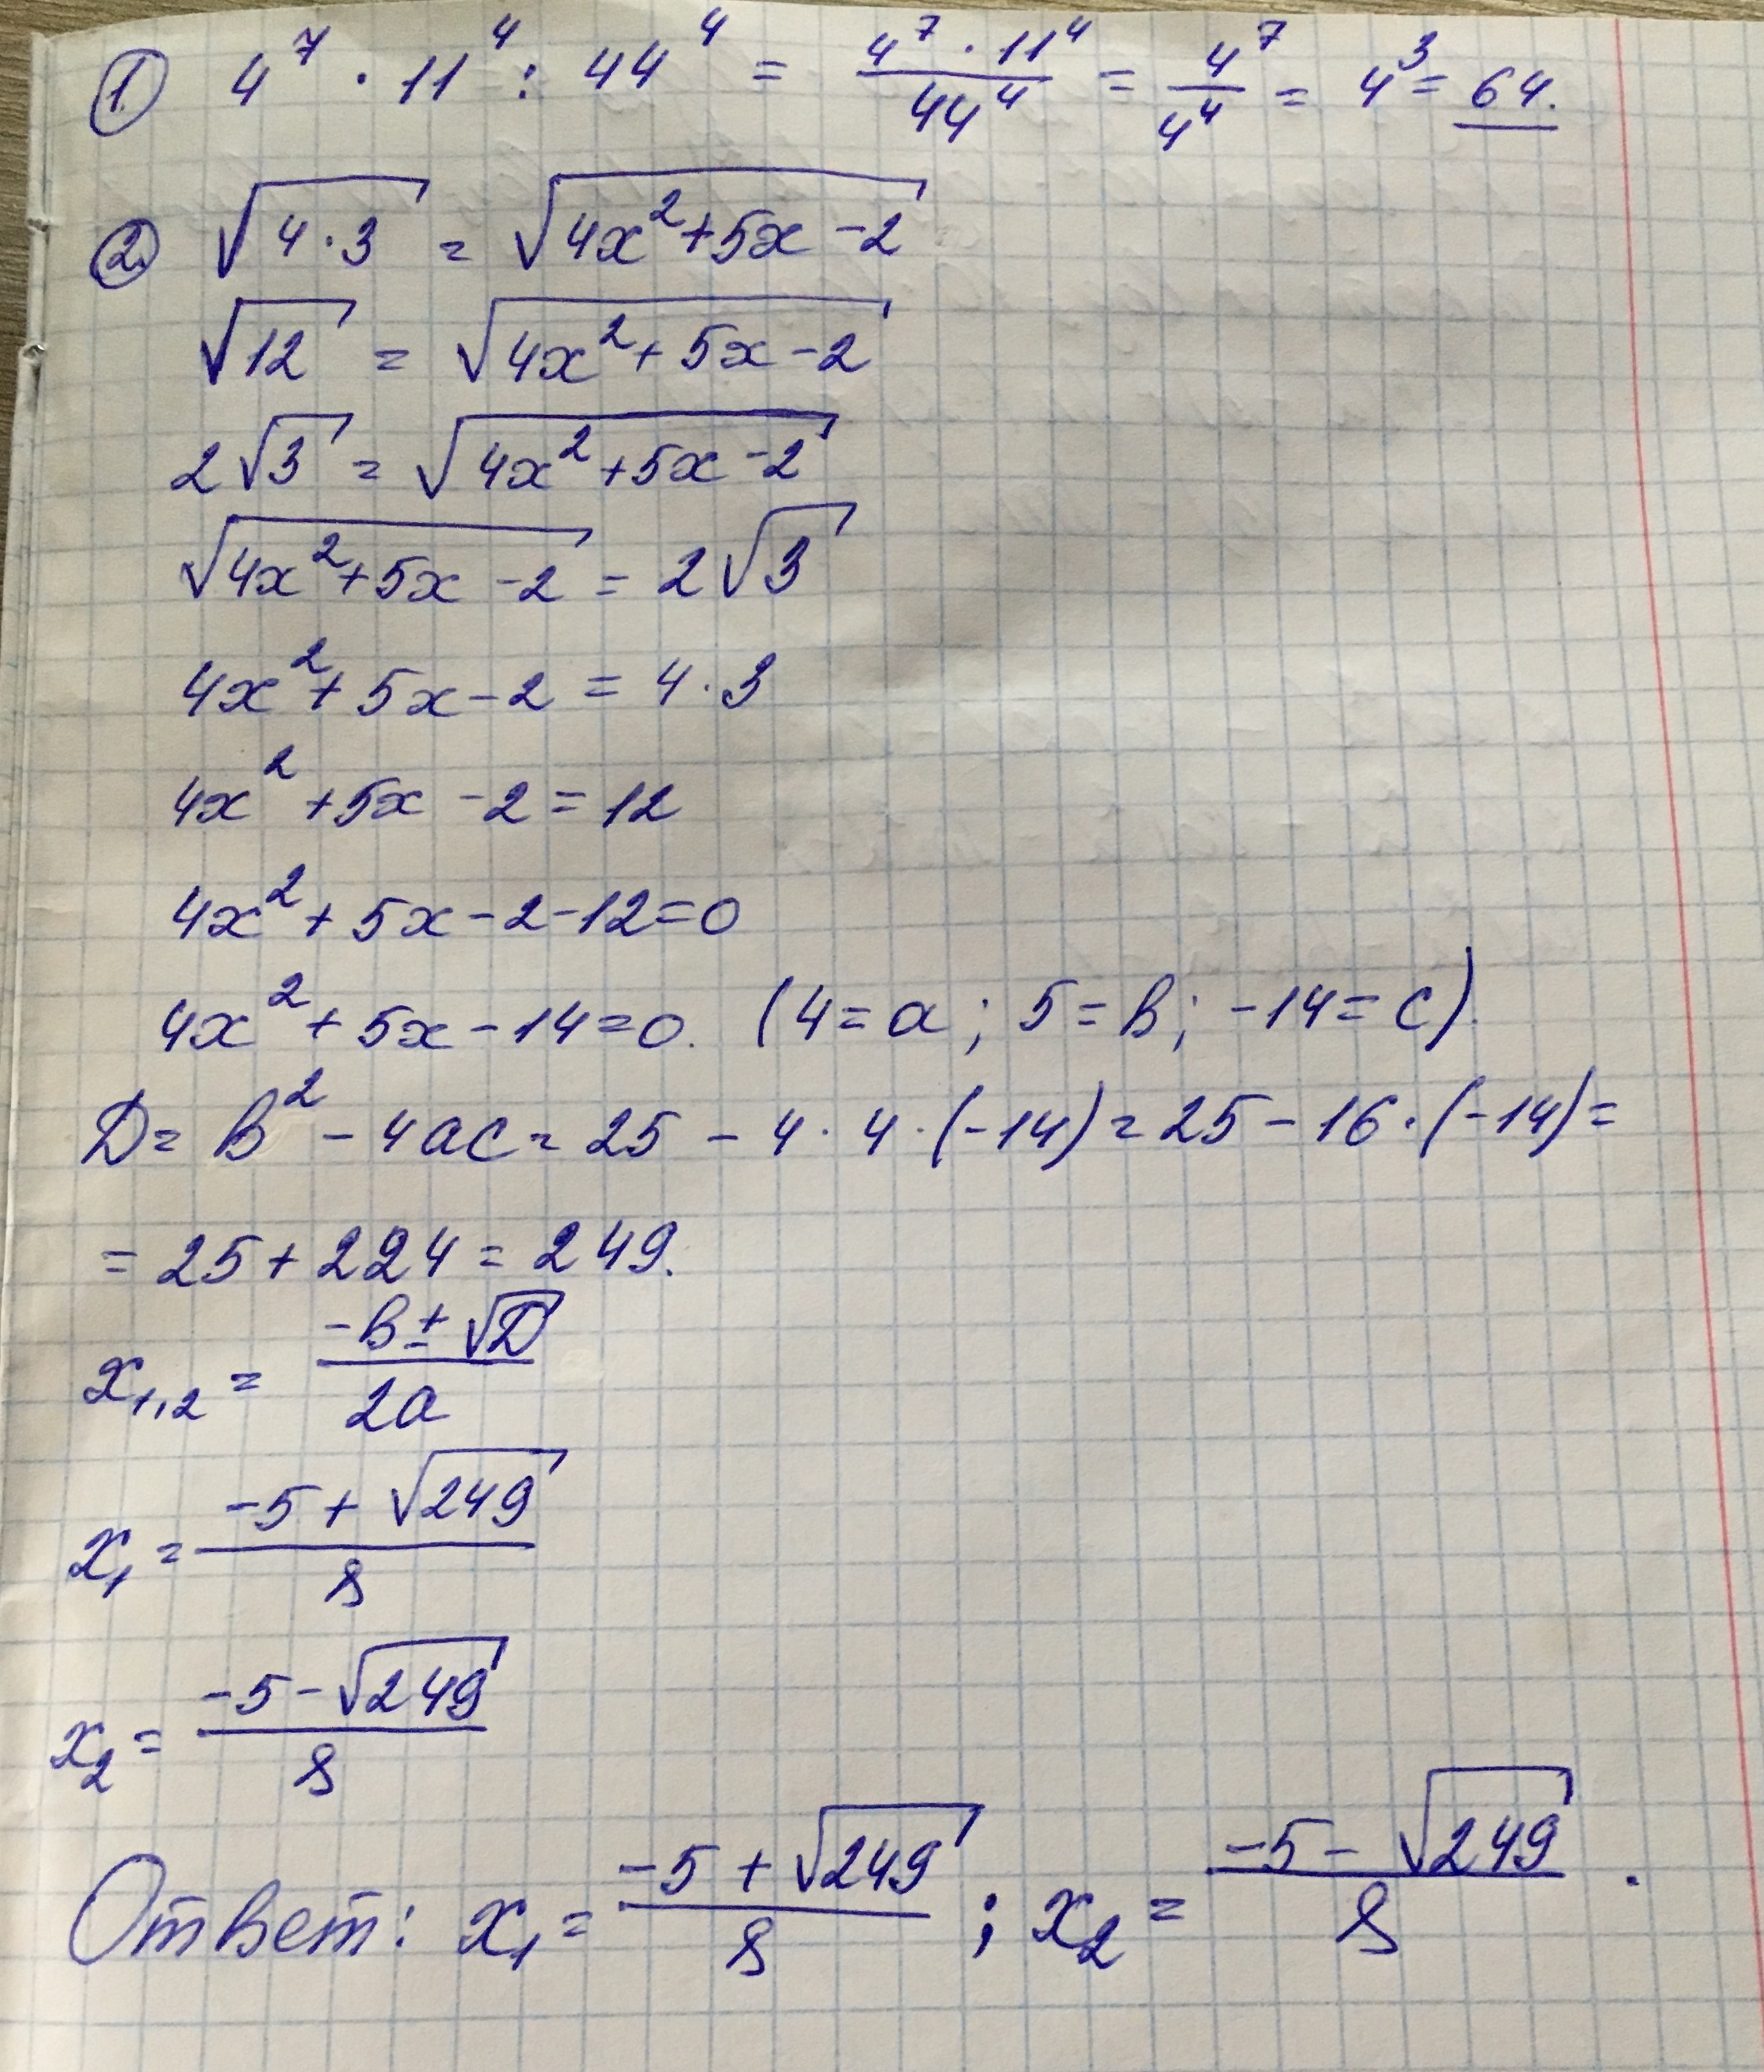 1. 4⁷ · 11⁴ : 44⁴ = (4⁷ · 11⁴)/44⁴ = 4⁷/4⁴ = 4³ = 64.
2. √(4·3) = √(4x²+5x-2)
√12 = √(4x²+5x-2)
2√3 = √(4x²+5x-2)
√(4x²+5x-2) = 2√3
4x²+5x-2 = 4·3
4x²+5x-2=12
4x²+5x-2-12=0
4x²+5x-14=0. (4=a; 5=b; -14=c).
D = b²-4ac = 25-4·4·(-14) = 25-16·(-14) =
= 25+224 = 249.
x₁,₂ = (-b±√D)/2a
x₁ = (-5+√249)/8
x₂ = (-5-√249)/8
Ответ: x₁ = (-5+√249)/8; x₂ = (-5-√249)/8.